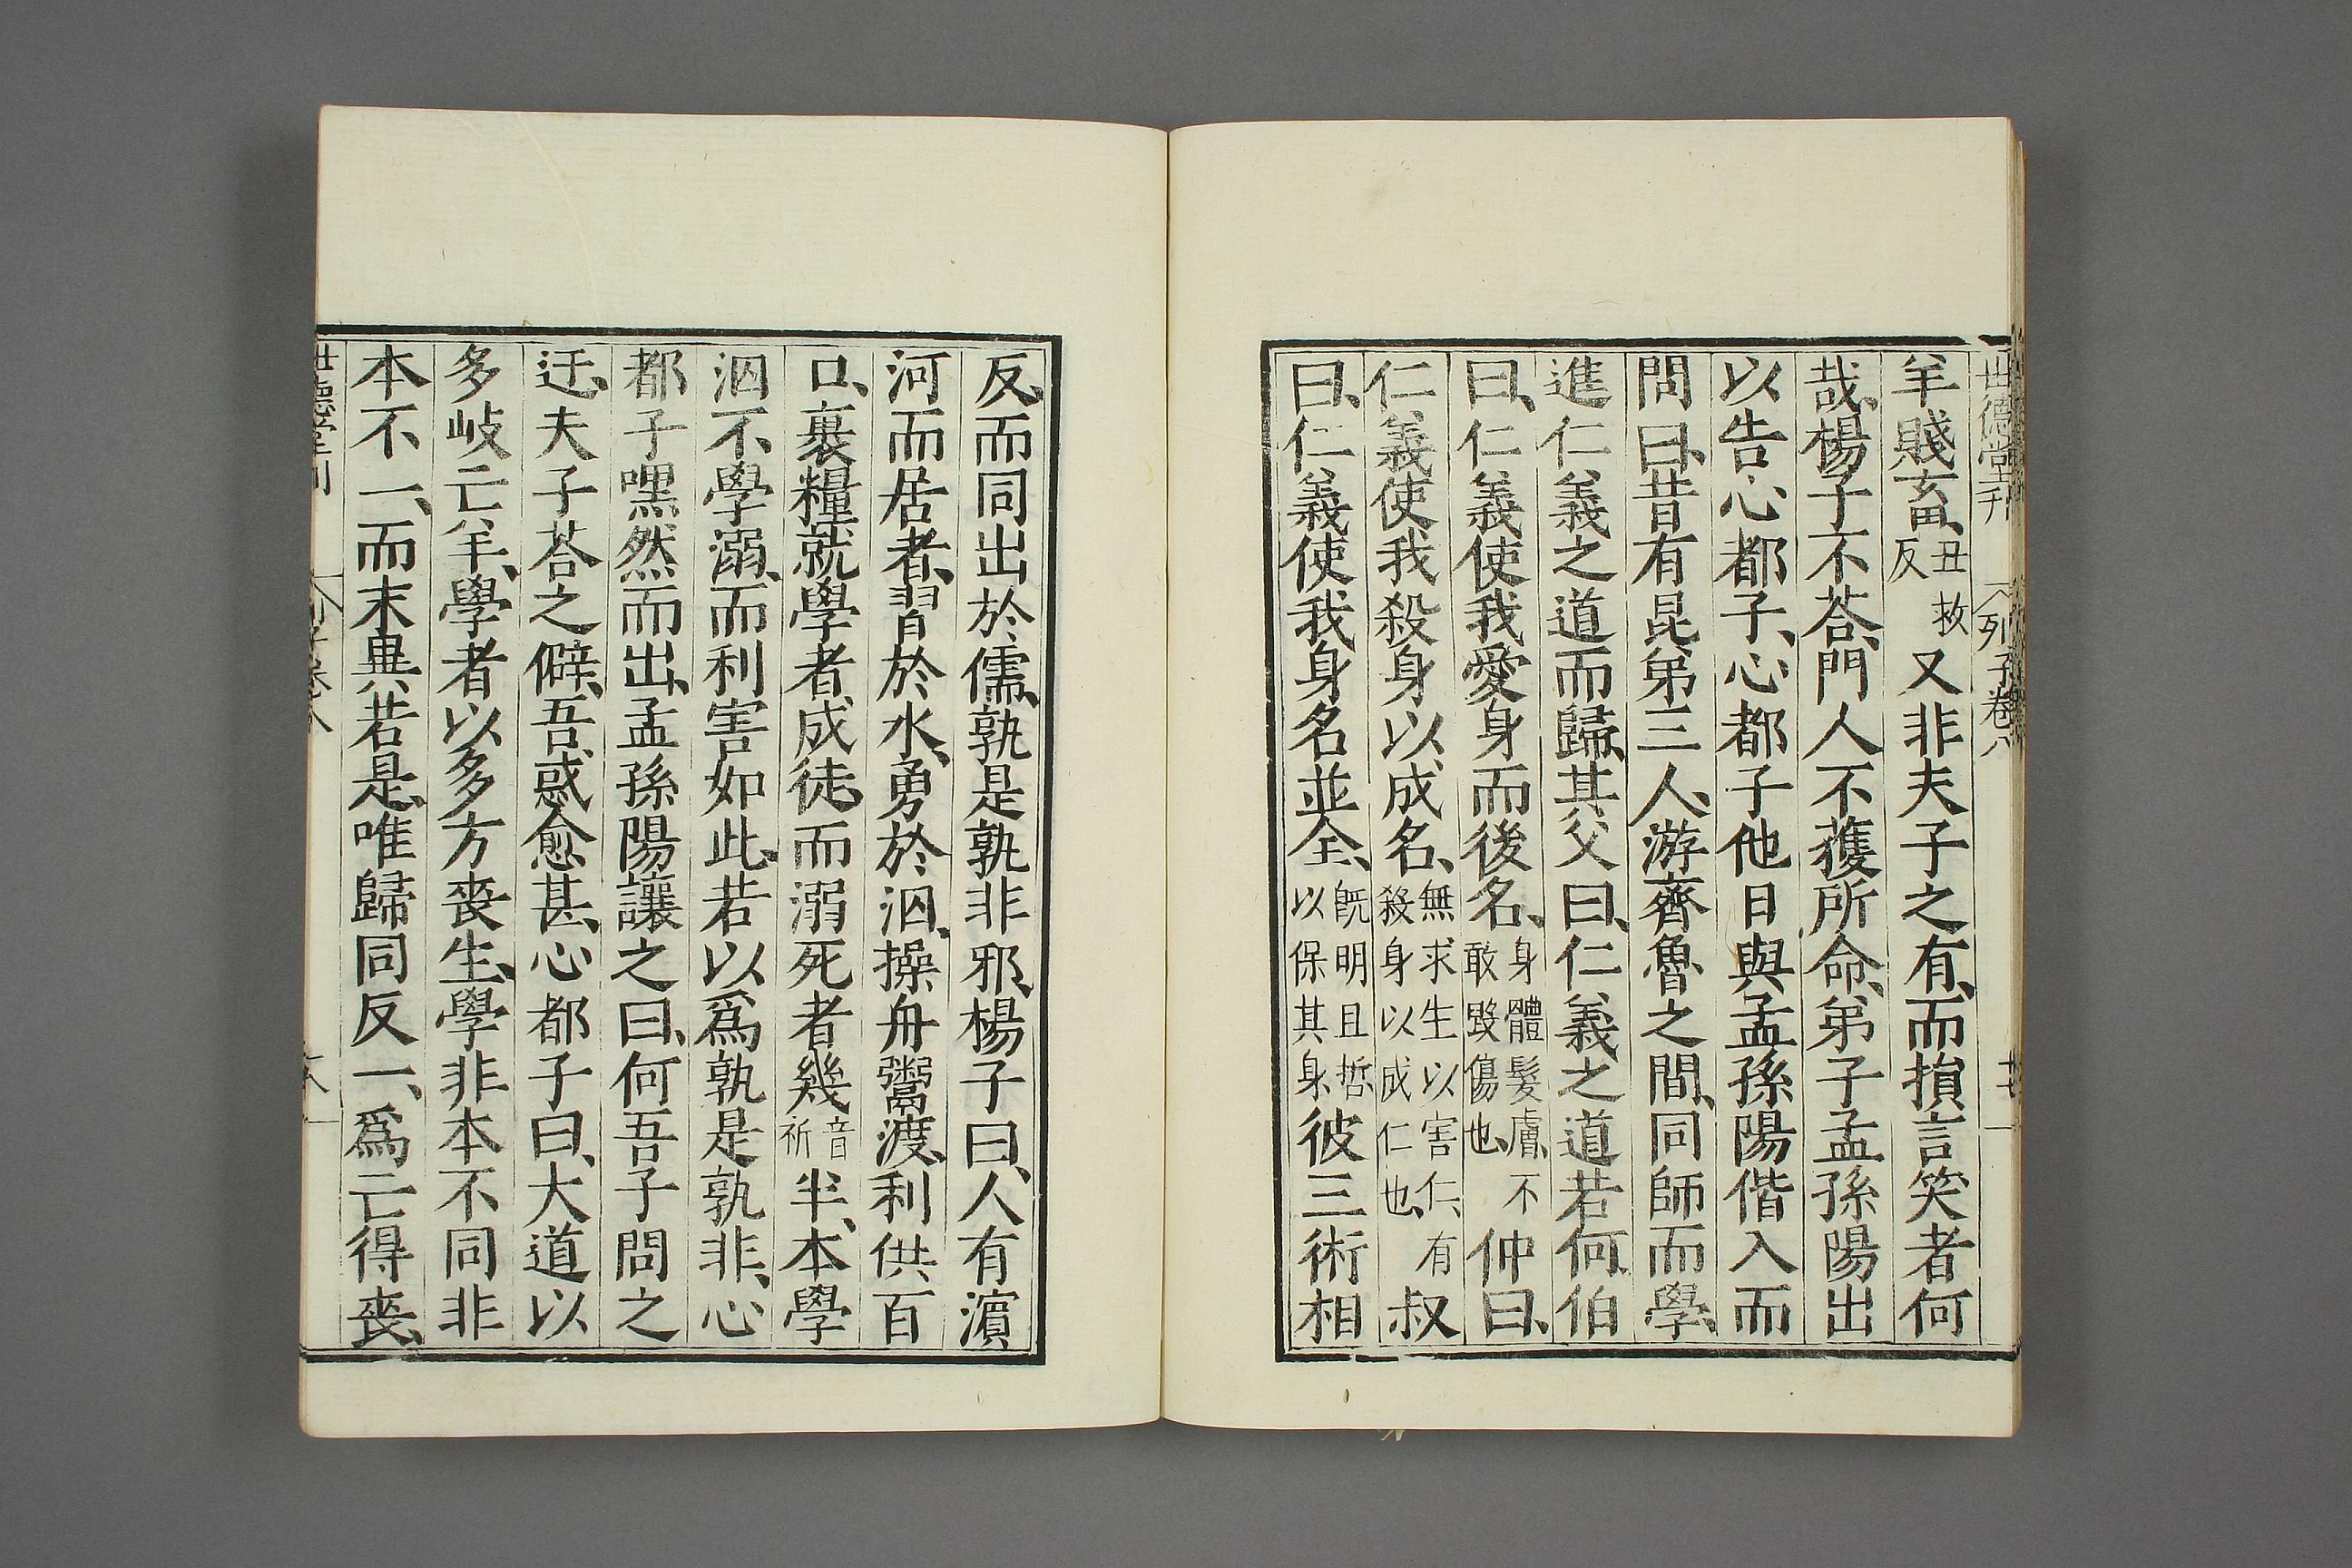 世德堂刊 列子卷八 十七
羊賤畜、丑救反又非夫子之有、而損言笑者何
哉、楊子不荅、門人不獲所命、弟子孟孫陽出
以告心都子、心都子他日與孟孫陽偕入而
問曰、昔有昆弟三人、游齊魯之間、同師而學、
進仁義之道而歸、其父曰、仁義之道若何、伯
曰、仁義使我愛身而後名、身體髮膚、不敢毀傷也、仲曰、
仁義使我殺身以成名、無求生以害仁、有殺身以成仁也、叔
曰、仁義使我身名並全、旣明且哲以保其身、彼三術相
反、而同出於儒、孰是孰非邪、楊子曰、人有濵
河而居者、習於水、勇於泅、操舟鬻渡、利供百
口、裹糧就學者、成徒、而溺死者幾音祈半、本學
泅、不學溺、而利害如此、若以爲孰是孰非、心
都子嘿然而出、孟孫陽讓之曰、何吾子問之
迂、夫子荅之僻、吾惑愈甚、心都子曰、大道以
多岐亡羊、學者以多方喪生、學非本不同非
本不一、而末異若是、唯歸同反一、爲亡得喪、
世德堂刊 卷八 十八